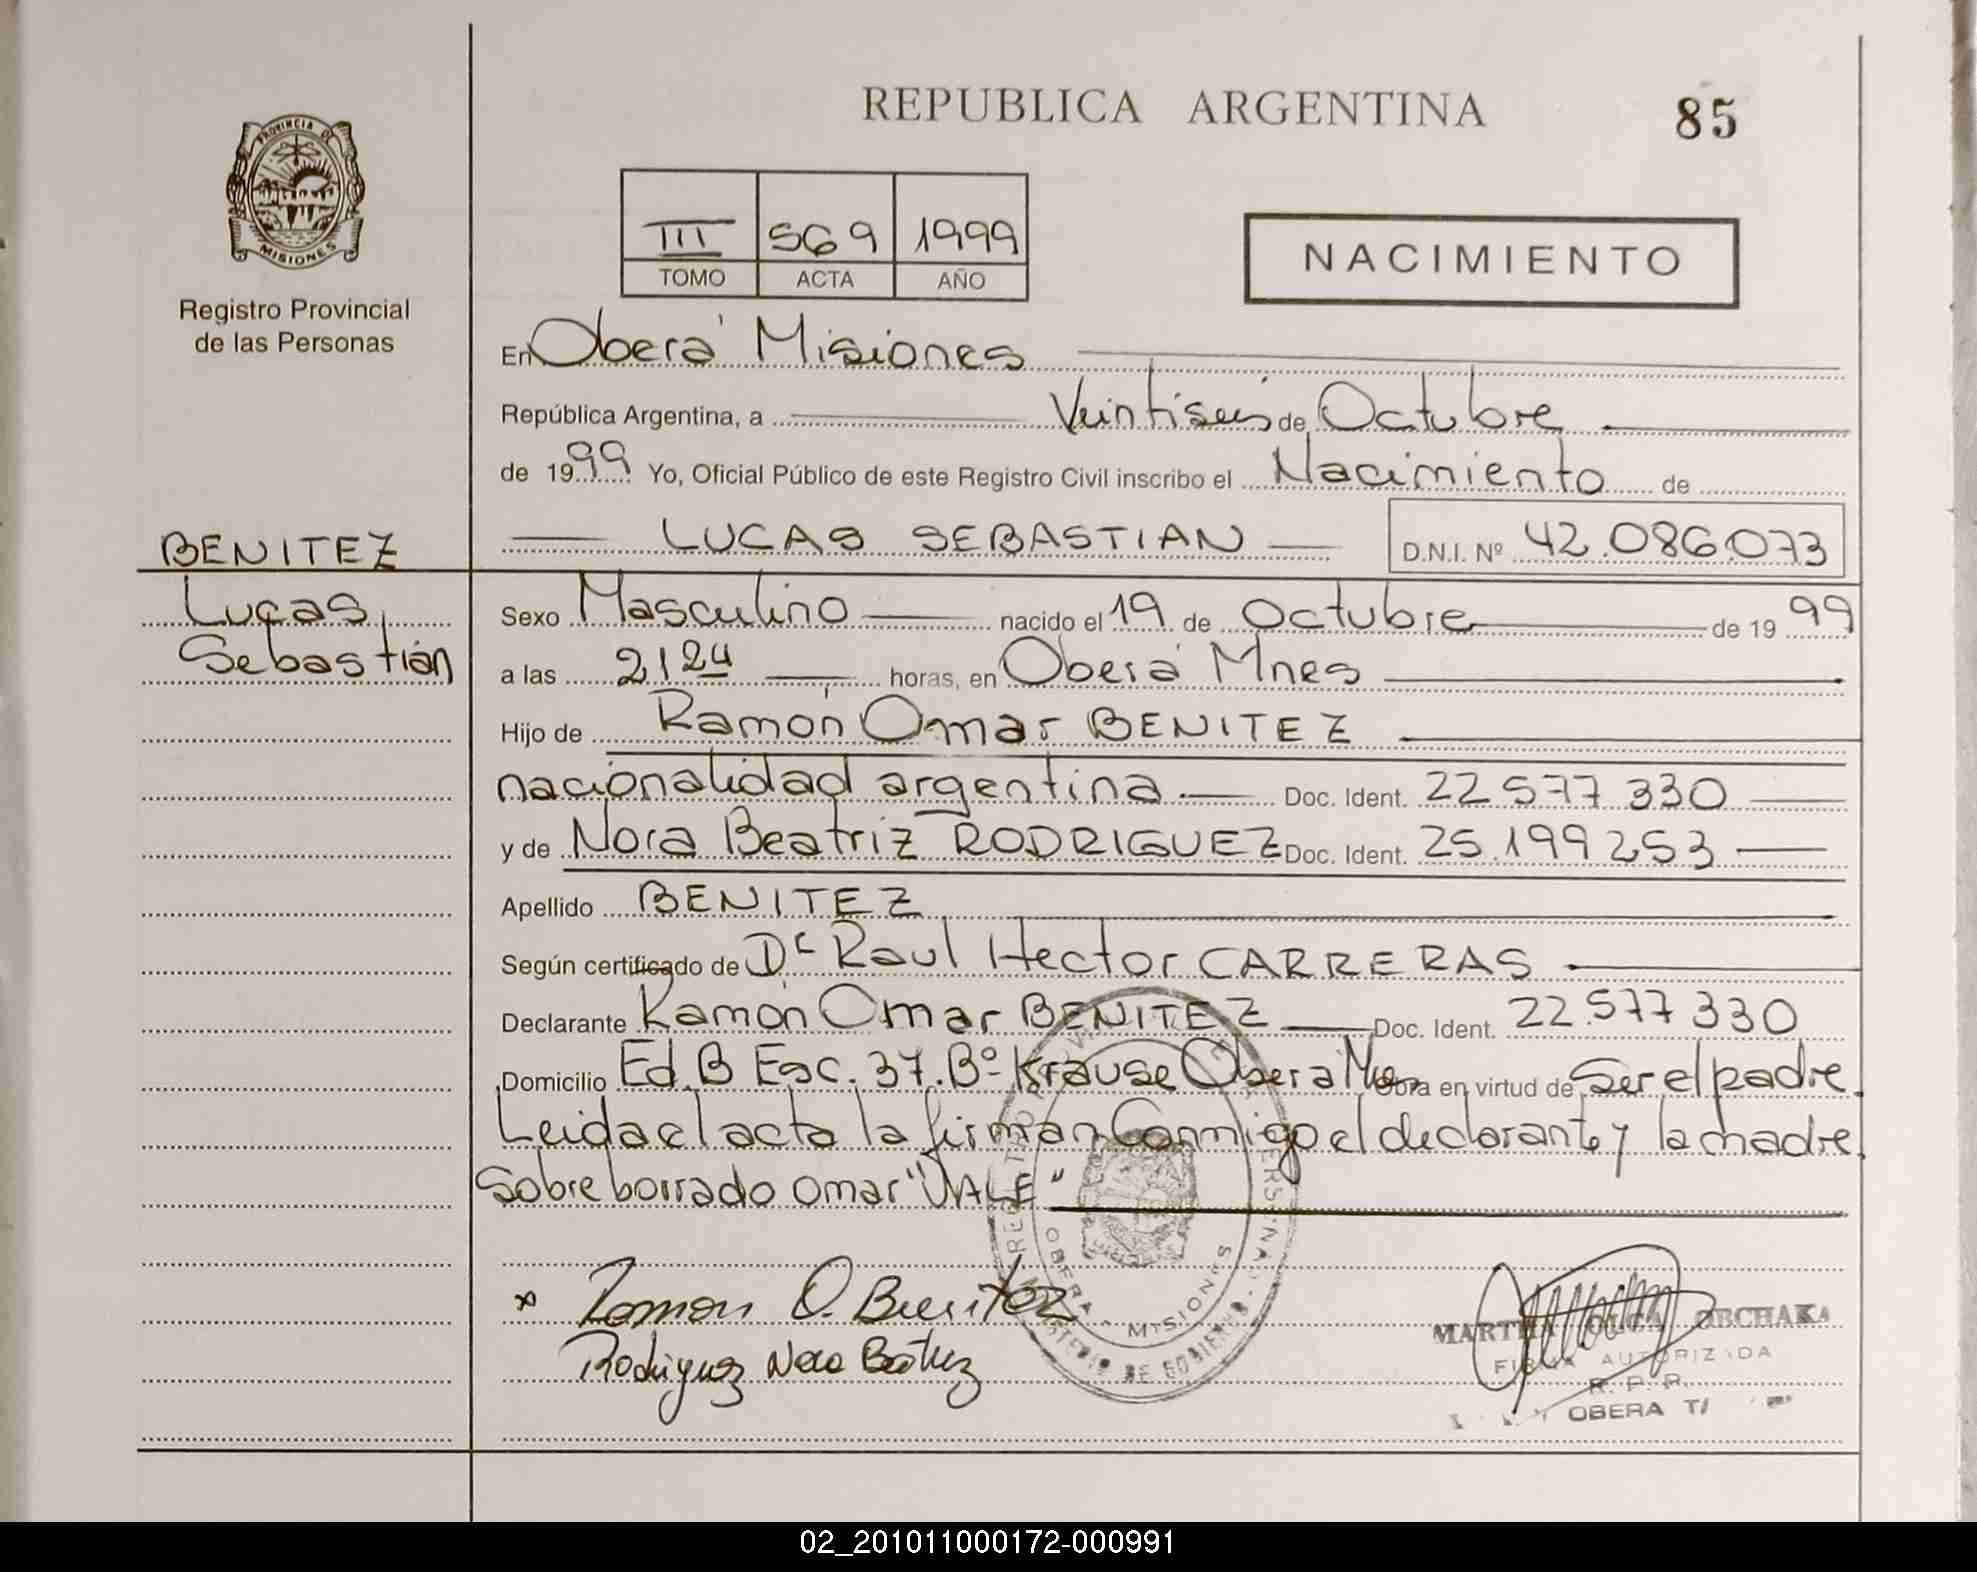 REPUBLICA ARGENTINA
85
PROVINCIA DE
MISIONES
Registro Provincial
de las Personas
III 569 1999
TOMO ACTA AÑO
NACIMIENTO
En Oberá Misiones
República Argentina, a Veintiseis de Octubre
de 1999 Yo, Oficial Público de este Registro Civil inscribo el Nacimiento de
LUCAS SEBASTIAN D.N.I. Nº 42.086.073
BENITEZ
Lucas
Sebastián
Sexo Masculino nacido el 19 de Octubre de 1999
a las 21 24 horas, en Oberá Mnes
Hijo de Ramón Omar BENITEZ
nacionalidad argentina Doc. Ident. 22 577 330
y de Nora Beatriz RODRIGUEZ Doc. Ident. 25.199 253
Apellido BENITEZ
Según certificado de Dr Raul Hector CARRERAS
Declarante Ramón Omar BENITEZ Doc. Ident. 22.577 330
Domicilio Ed. B Esc. 37. Bº Krause Obera Mnes Obra en virtud de Ser el padre.
Leida el acta la firman Conmigo el declarante y la madre.
Sobre borrado omar "VALE"
x Ramon O. Benitez
Rodriguez Nora Beatriz
OBERA - MISIONES
MINISTERIO DE GOBIERNO
MARTHA OLGA ORCHAKA
FIRMA AUTORIZADA
R. P. P.
OBERA
02_201011000172-000991